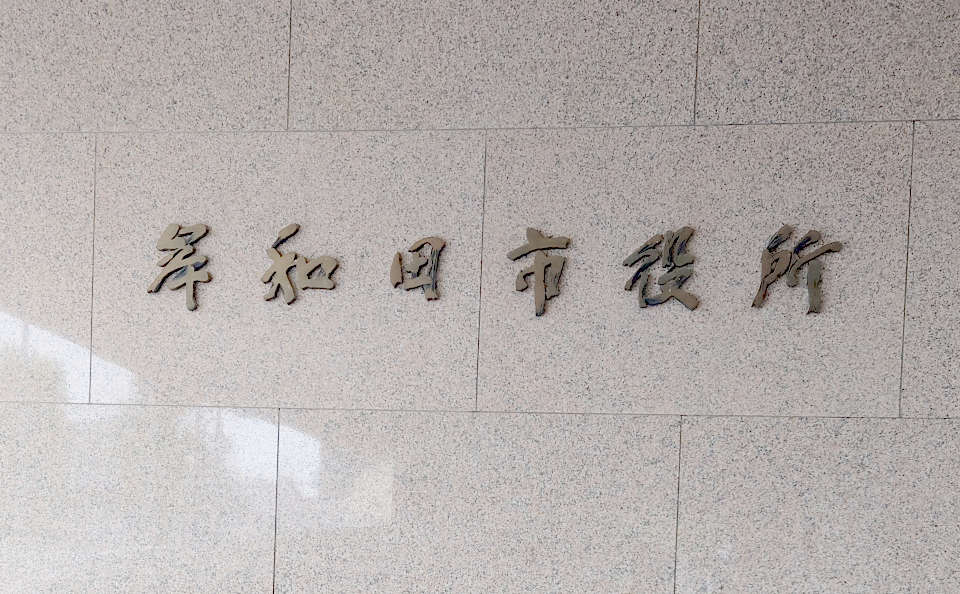 岸和田市役所